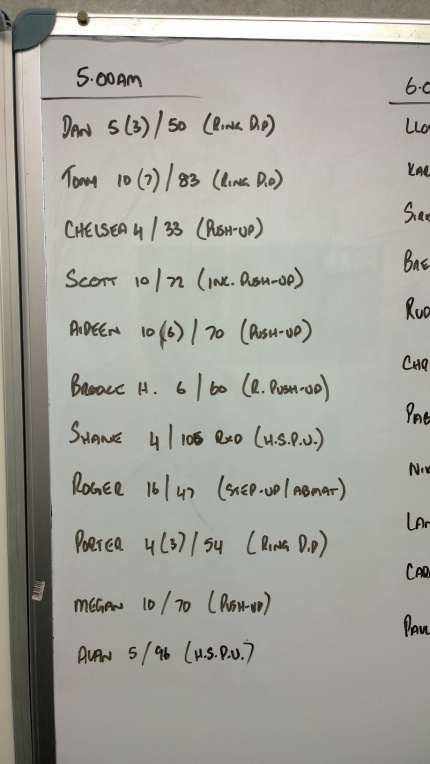 5.00AM
DAN 5(3)/50 (RING DIP)
TOMM 10(7)/83 (RING DIP)
CHELSEA 4/33 (PUSH-UP)
SCOTT 10/72 (INC. PUSH-UP)
AIDEEN 10(6)/70 (PUSH-UP)
BROOKE H. 6/60 (R. PUSH-UP)
SHANE 4/105 RXD (H.S.P.U.)
ROGER 16/47 (STEP-UP/ABMAT)
PORTER 4(3)/54 (RING DIP)
MEGAN 10/70 (PUSH-UP)
ALAN 5/96 (H.S.P.U.)
6.0
LLO
KAR
BRE
RUD
CHR
PAB
NIK
LAN
CAR
PAUL